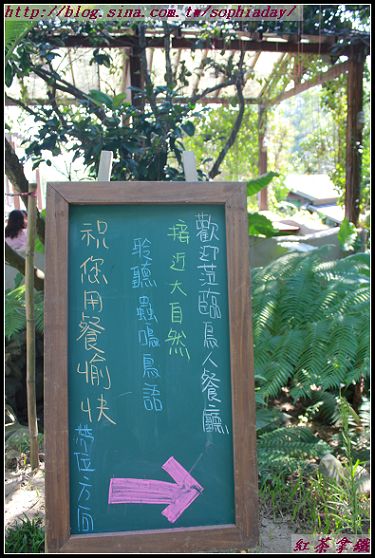 http://blog.sina.com.tw/sophiaday/
歡迎蒞臨鳥人餐廳
接近大自然
聆聽蟲鳴鳥語
祝您用餐愉快
帶位方向
紅茶拿鐵